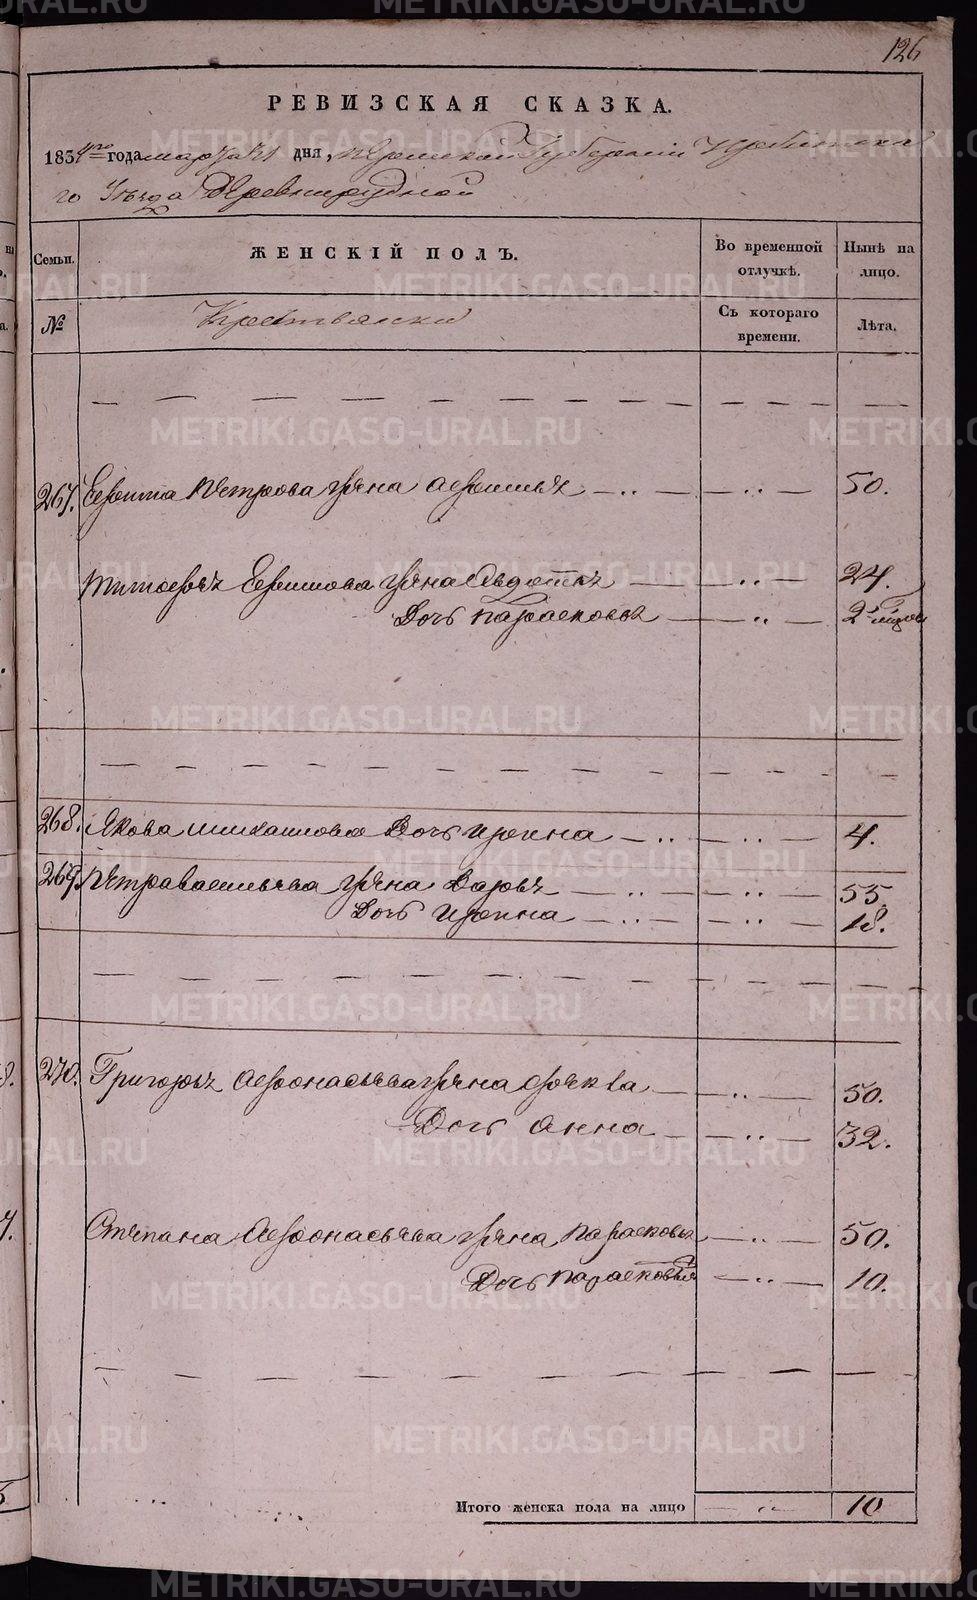 126
РЕВИЗСКАЯ СКАЗКА.
1834го года марта 21 дня, Пермской Губернии Ирбитска
го Уезда Деревни Рудной
Семьи. ЖЕНСКІЙ ПОЛЪ. Во временной отлучкѣ. Нынѣ на лицо.
№ Крестьянски Съ котораго времени. Лѣта.
267. Петрова жена 50.
жена 24.
Дочь Парасковья 2
268. Якова Дочь Ирина 4.
269. Петра Васильева жена Дарья 55.
Дочь Ирина 18.
270. Григорья Афонасьева жена Фекла 50.
Дочь Анна 32.
Степана Афонасьева жена Парасковья 50.
Дочь Парасковья 10.
Итого женска пола на лицо 10
METRIKI.GASO-URAL.RU